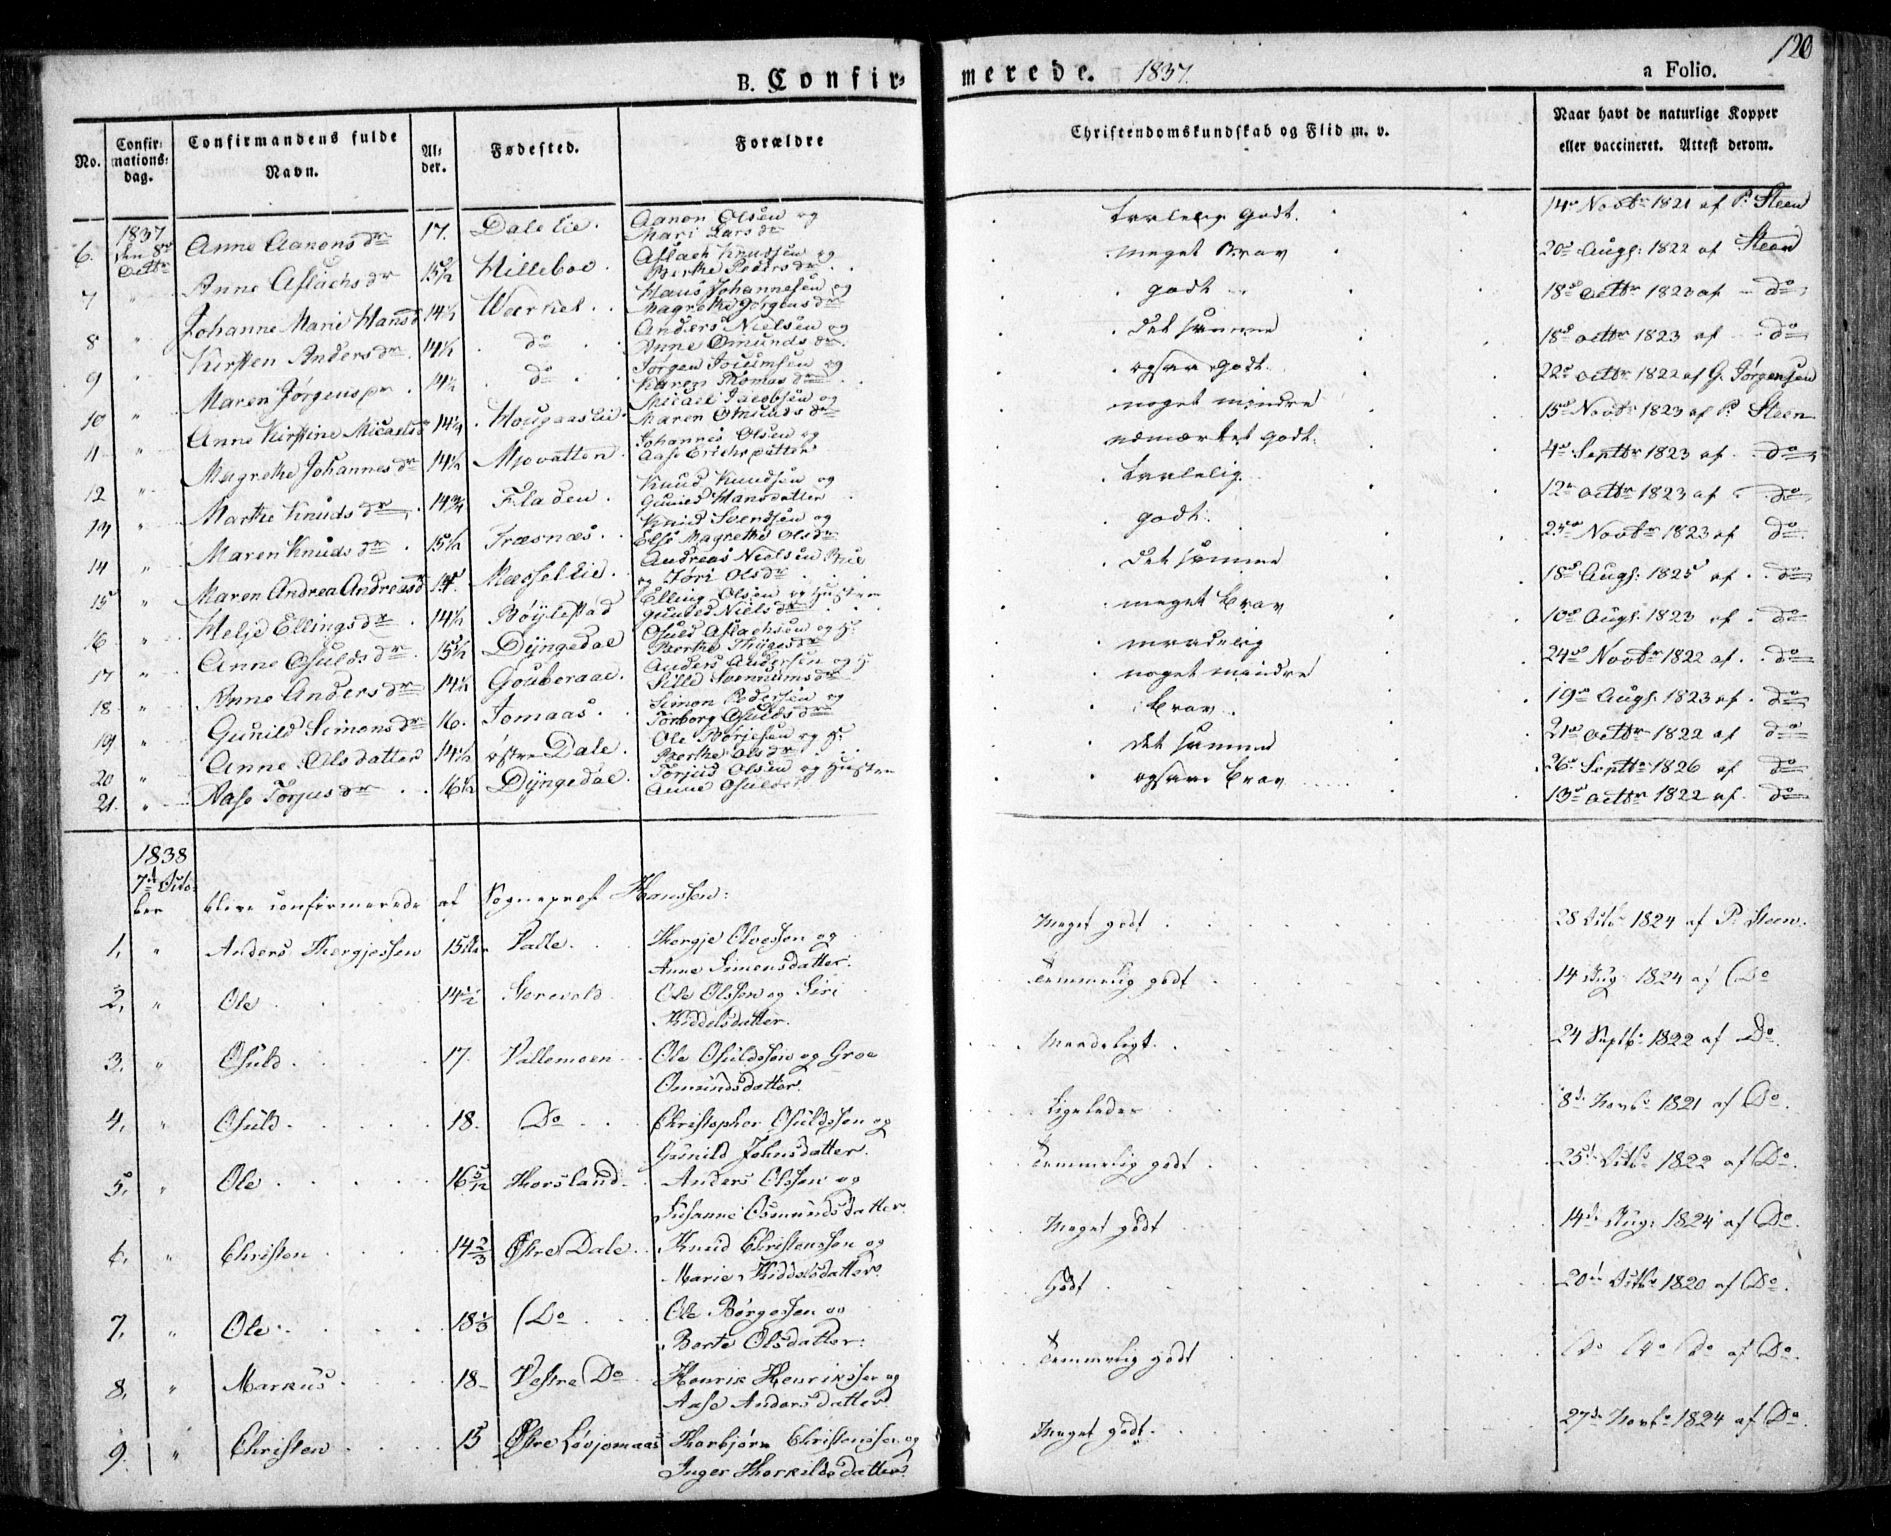 120
B. Confirmerede. 1837. a Folio.
No. Confirmations-dag. Confirmandens fulde Navn. Alder. Fødested. Forældre Christendomskundskab og Flid m. v. Naar havt de naturlige Kopper eller vaccineret. Attest derom.
6. 1837 den 8de Octbr Anne Aanonsdr 17. Dalelie. Aanon Olsen og Mari Larsdr temelig Godt. 14de Novbr 1821 af P. Steen
7 " Anne Aslachsdr 15½ Hilleboe. Aslach Knudsen og Berthe Pedersdr. meget Brav 20de Augs: 1822 af Steen
8 " Johanne Marie Hansd 14½ Weernes. Hans Johannesen og Magrethe Jørgensdr godt 18de octbr 1823 af do
9 " Kirsten Andersdr. 14½ do Anders Nielsen og Anne Omundsdr. det samme 18de octbr 1823 af do
10 " Maren Jørgens 14½ do Jørgen og Karen Thomasdr ogsaa godt. 22de octbr 1822 af G. Jørgensen
11 " Anne Kirstine Micaelsd 14¼ Hougaaslie. Micael Jacobsen og Maren Omundsdr noget mindre 15de Novbr 1823 af P. Steen
12 " Magrethe Johannesdr 14½ Mjovatten. Johannes Olsen og Aase Erichsdatter udmærket godt. 4de Septbr 1823 af do
13 " Marthe Knudsdr 14¾ Fladen. Knud Knudsen og Guned Hansdatter temelig 12te octbr 1823 af do
14 " Maren Knudsdr. 15½ Træsnæs. Knud Svendsen og Else Magrethe Olsdr. godt. 25de Novbr 1823 af do
15 " Maren Andrea Andreasd 14. Mæssellie. Andreas Nielsen og Jøri Olsdr det samme 18de Augs: 1825 af do
16 " Helje Ellingsdr. 14½ Bøylestad Elling Olsen og Hustru Guned Nielsdr meget brav 10de Augs: 1823 af do
17 " Anne Osuldsdr. 15½ Dyngedal Osuld Aslachsen og H: Berthe Thygesdr maadelig 24de Novbr 1822 af do
18 " Anne Andersdr 14½ Gouberaae. Anders Andersen og H Sille Svennumsdr noget mindre 19de Augs: 1823 af do
19 " Gunild Simonsdr 16. Jomaas. Simon Pedersen og Torborg Osuldsdr brav. 21de octbr 1822 af do
20 " Anne Olsdatter 14½ østre Dale. Ole Børjesen og H: Berthe Olsdr det samme 26de Septbr 1826 af do
21. " Aase Torjusdr 16½ Dyngedal. Torjus Olsen og Hustru Anne Osuldsdr ogsaa brav 13de octbr 1822 af do
1838 7de October bleve confirmerede af Sogneprest Hanssen:
1, " Anders Thorgjessen 15 Valle. Thorgje Olvessen og Anne Simonsdatter. Meget godt 28 Octbr 1824 af P. Steen.
2, " Ole 14½ Ole Olssen og Siri Kiddelsdatter. Temmelig godt 14 Aug: 1824 af Do
3, " Osuld 17. Vallemoen Ole Osuldssen og Groe Omundsdatter. Maadeligt. 24 Septb: 1822 af Do.
4, " Osuld 18. Do Christopher Osuldssen og Gunild Johnsdatter. Ligeledes 8de Novbr 1821 af Do.
5, " Ole 16 5/12 Thorsland. Anders Olssen og Susanne Osmundsdatter. Temmelig godt 25de Octbr 1822 af Do.
6, " Christen 14⅔ Østre Dale. Knud Christenssen og Marie Kiddelsdatter. Meget godt 14de Aug: 1824 af Do.
7, " Ole 18⅓ Do Ole Børgessen og Berte Olsdatter. Godt 20de Octbr 1820 af Do.
8, " Markus 18 Vestre Do Henrik Henrikssen og Aase Andersdatter Temmelig godt Do Do Do af Do.
9. " Christen 15 Østre Løvjomaas Thorbjørn Christenssen og Inger Thorkildsdatter. Meget godt. 27de Novbr 1824 af Do